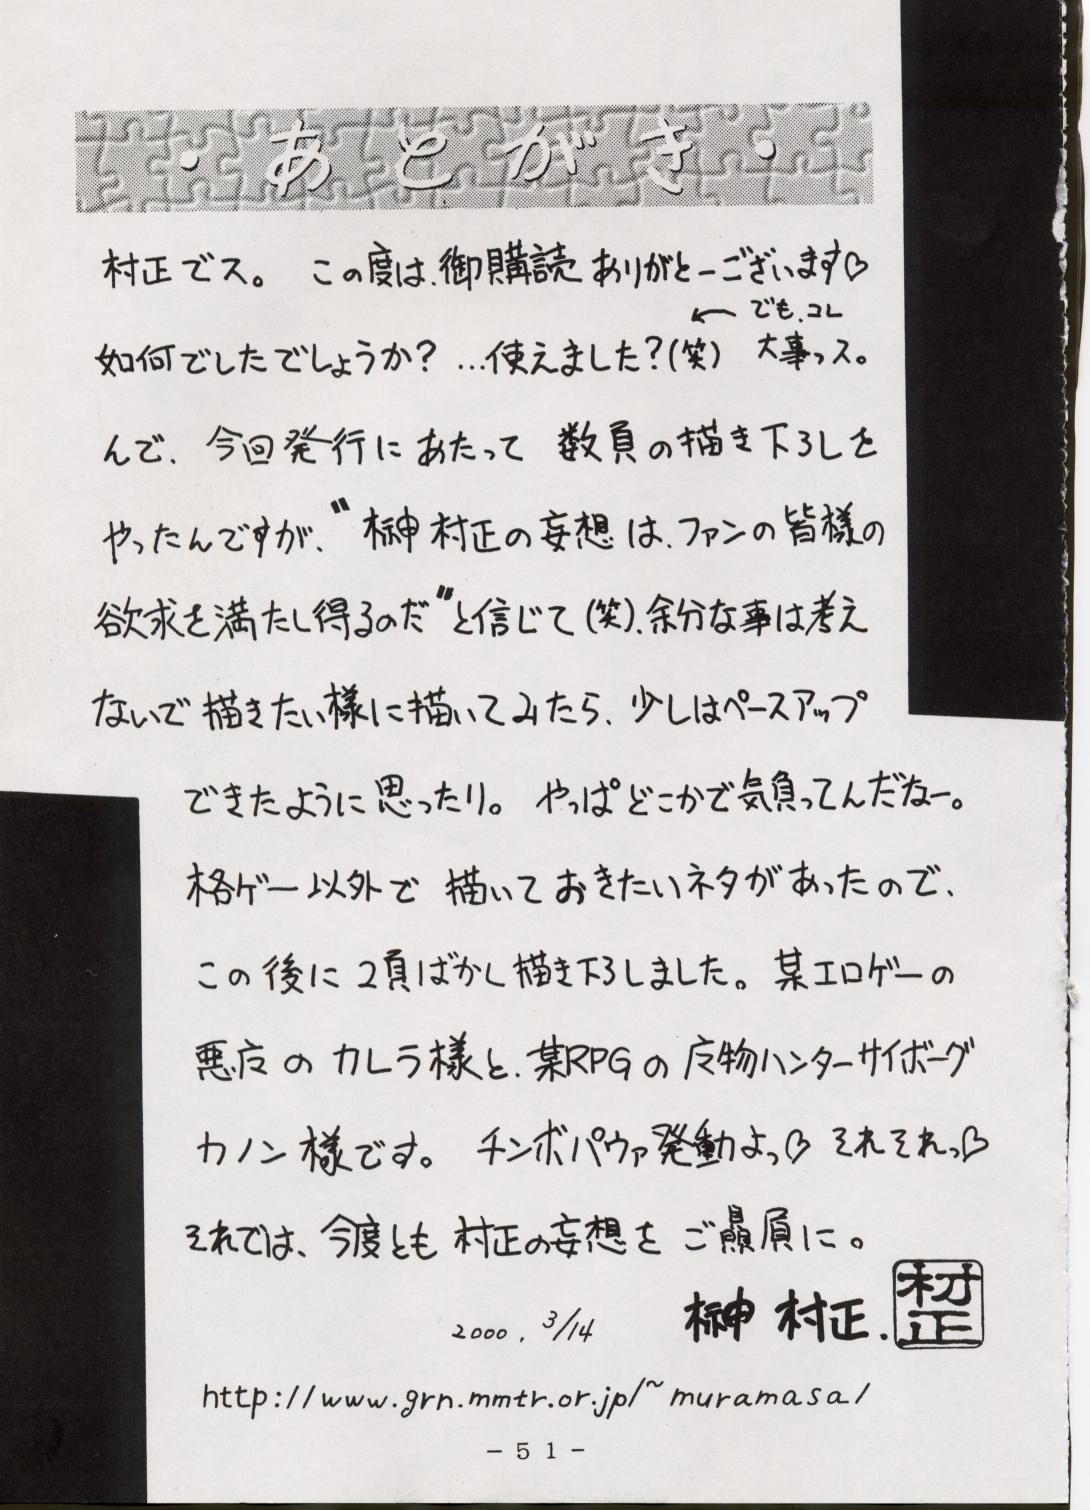 ・あとがき・
村正でス。 この度は、御購読ありがとーございます♡
如何でしたでしょうか? …使えました?(笑) ← でも、コレ
大事っス。
んで、今回発行にあたって 数頁の描き下ろしを
やったんですが、〝榊 村正の妄想は、ファンの皆様の
欲求を満たし得るのだ〞と信じて(笑)、余分な事は考え
ないで描きたい様に描いてみたら、少しはペースアップ
できたように思ったり。 やっぱどこかで気負ってんだなー。
格ゲー以外で 描いておきたいネタがあったので、
この後に2頁ばかし描き下ろしました。某エロゲーの
悪魔のカレラ様と、某RPGの魔物ハンターサイボーグ
カノン様です。 チンボパウァ発動よっ♡ それそれっ♡
それでは、今度とも 村正の妄想を ご贔屓に。
榊 村正. 村正
2000. 3/14
http://www.grn.mmtr.or.jp/~muramasa/
-51-